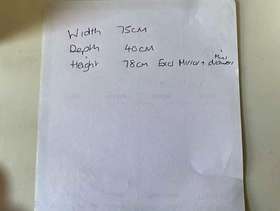 Width 75cm
Depth 40cm
Height 78cm Excl Mirror + mini drawers